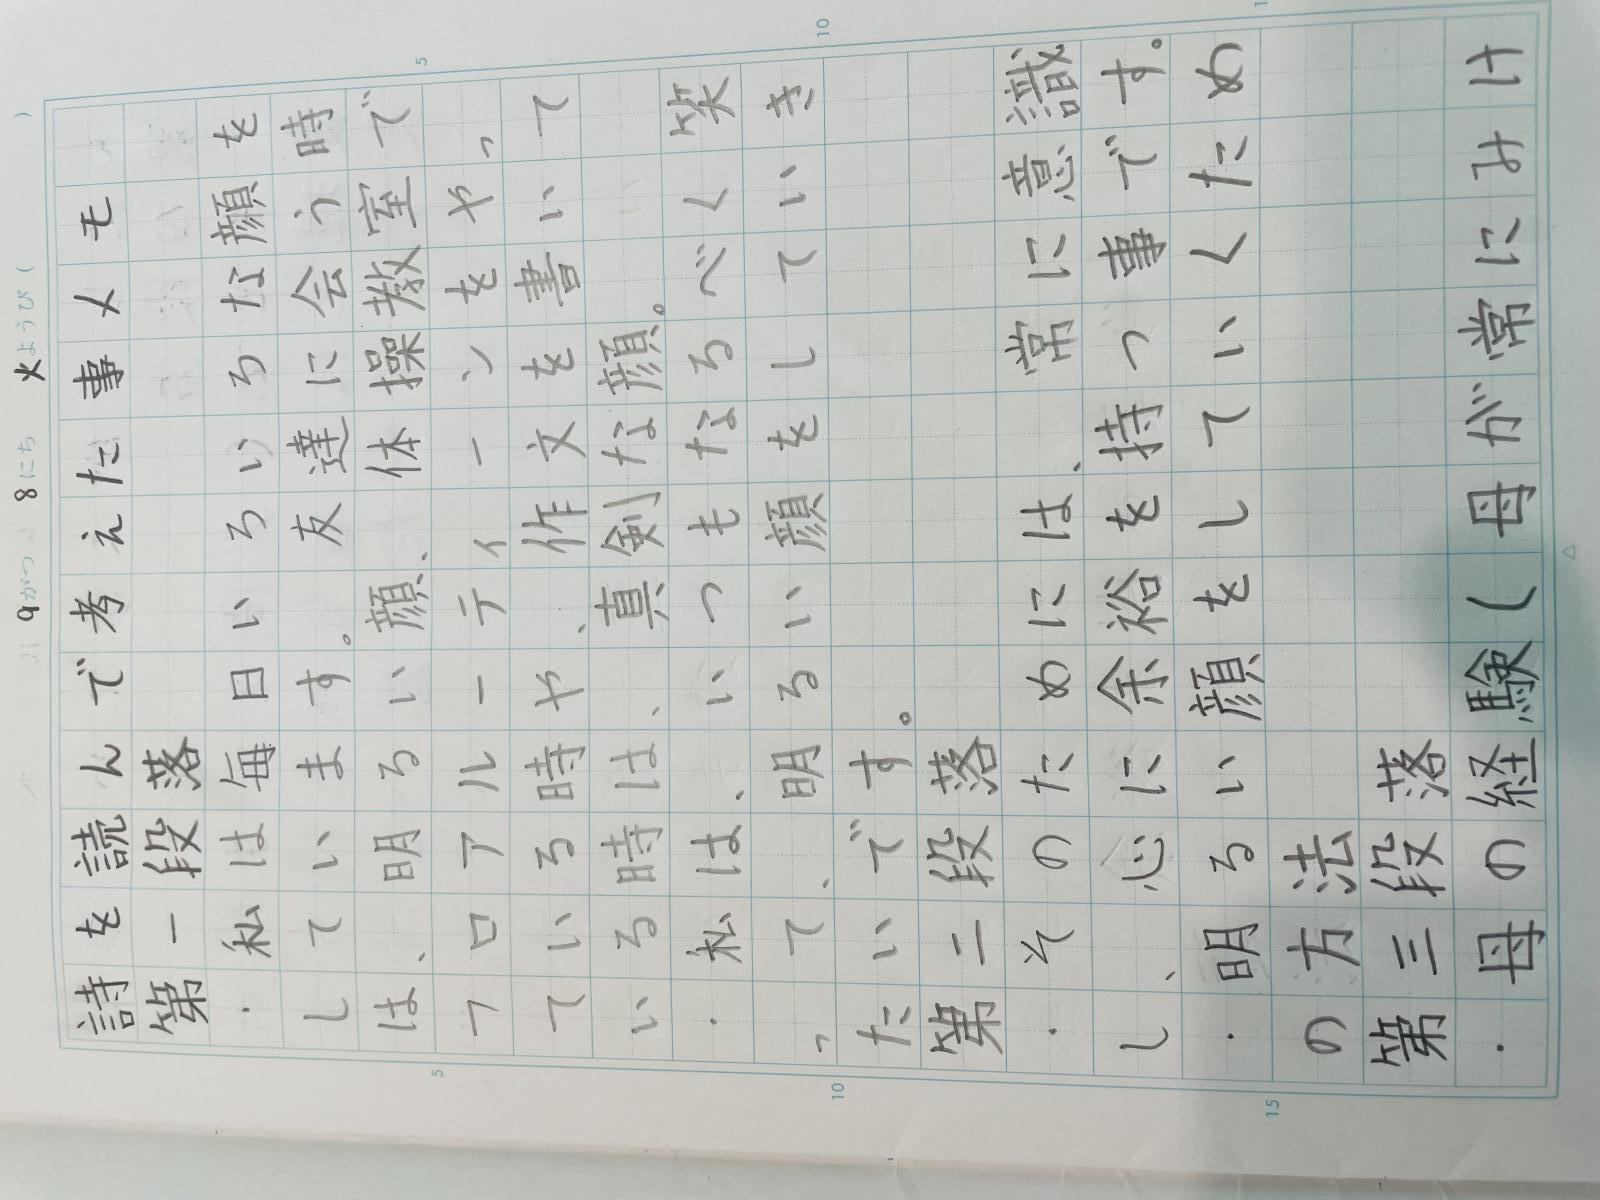 9がつ 8にち 火ようび( )
詩を読んで考えた事メモ
第一段落
・私は毎日いろいろな顔を
しています。友達に会う時
は、明るい顔、体操教室で
フロアルーティーンをやっ
ている時や、作文を書いて
いる時は、真剣な顔。
・私は、いつもなるべく笑
って、明るい顔をしていき
たいです。
第二段落
・そのためには、常に意識
し、心に余裕を持つ事です。
・明るい顔をしていくため
の方法
第三段落
・母の経験(母が常にみけ
5
10
5
10
15